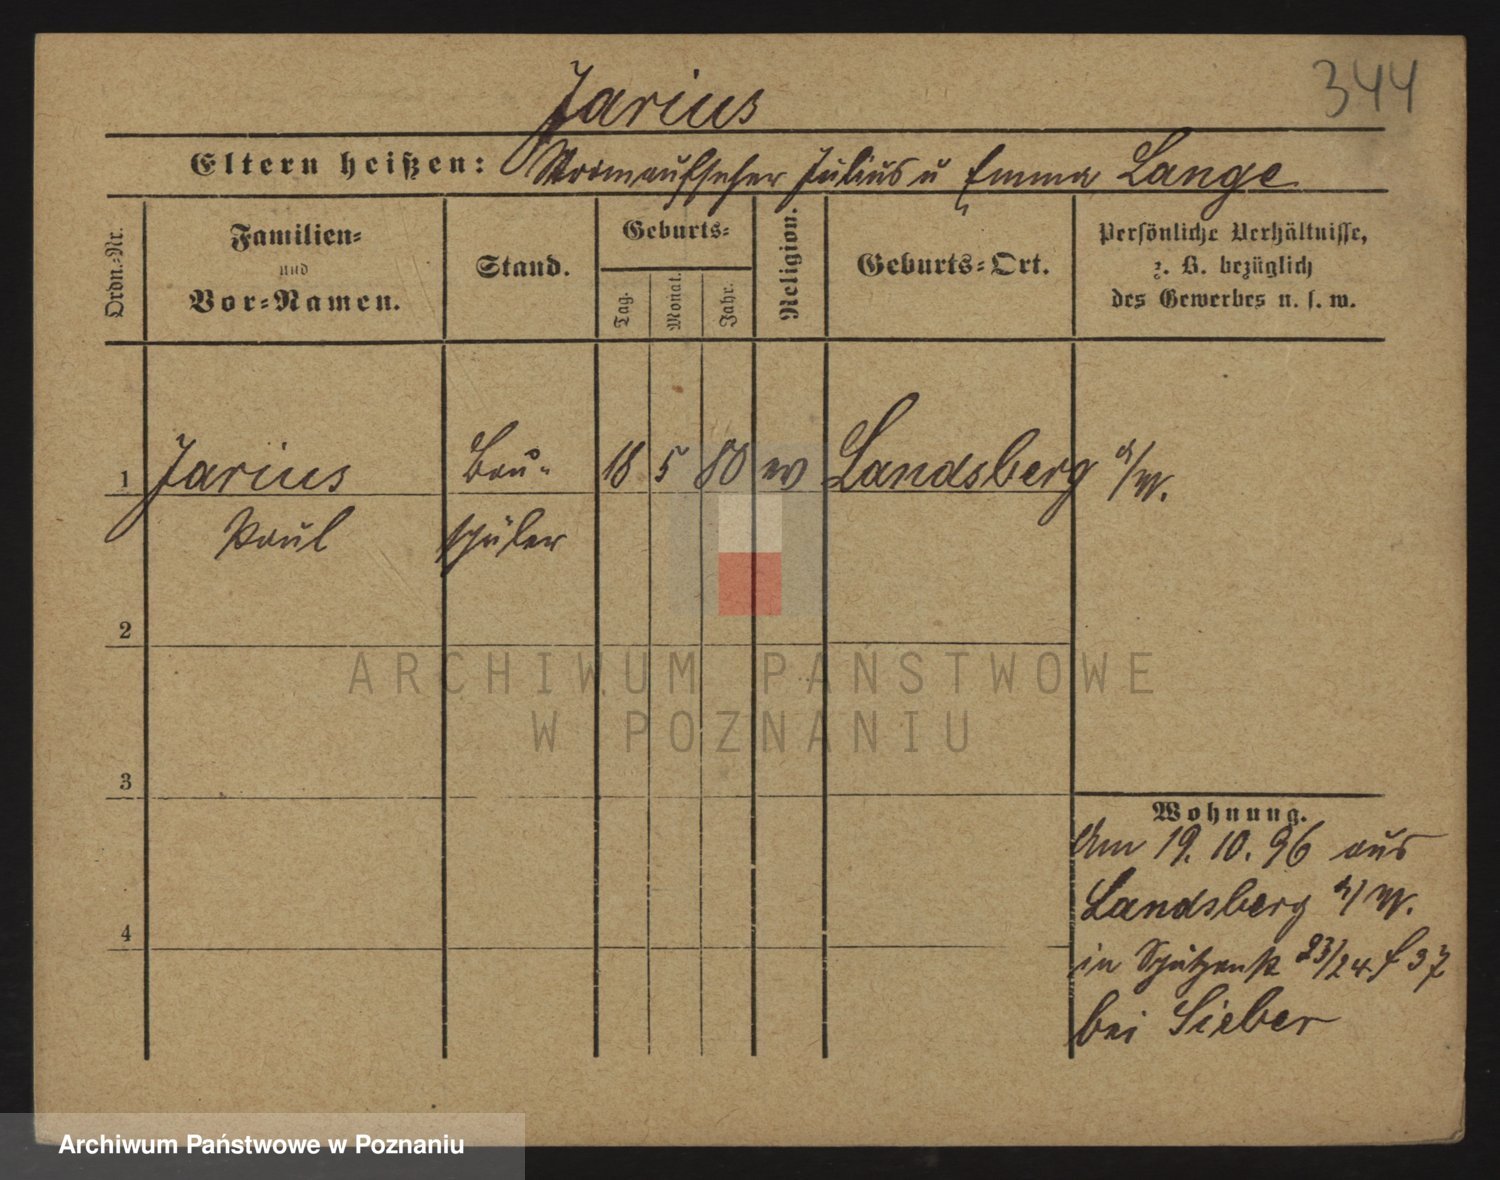 344
Jarius
Eltern heißen: Stromaufseher Julius u Emma Lange
Ordn.-Nr.
Familien-
und
Vor-Namen.
Stand.
Geburts-
Tag.
Monat.
Jahr.
Religion.
Geburts-Ort.
Persönliche Verhältnisse,
z. B. bezüglich
des Gewerbes u. s. w.
1 Jarius Bau- 18 5 80 ev Landsberg a/W.
Paul schüler
2
3
4
Wohnung.
Am 19. 10. 96 aus
Landsberg a/W.
in Schützenstr 23/24
bei Sieber
ARCHIWUM PAŃSTWOWE
W POZNANIU
Archiwum Państwowe w Poznaniu